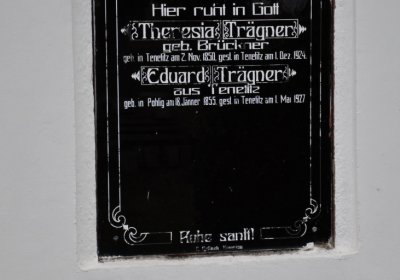 Hier ruht in Gott
Theresia Trägner
geb. Brückner
geb. in Tenetitz am 2. Nov. 1850, gest. in Tenetitz am 1. Dez. 1924.
Eduard Trägner
aus Tenetitz
geb. in Pohlig am 18. Jänner 1855, gest. in Tenetitz am 1. Mai 1927
Ruhe sanft!